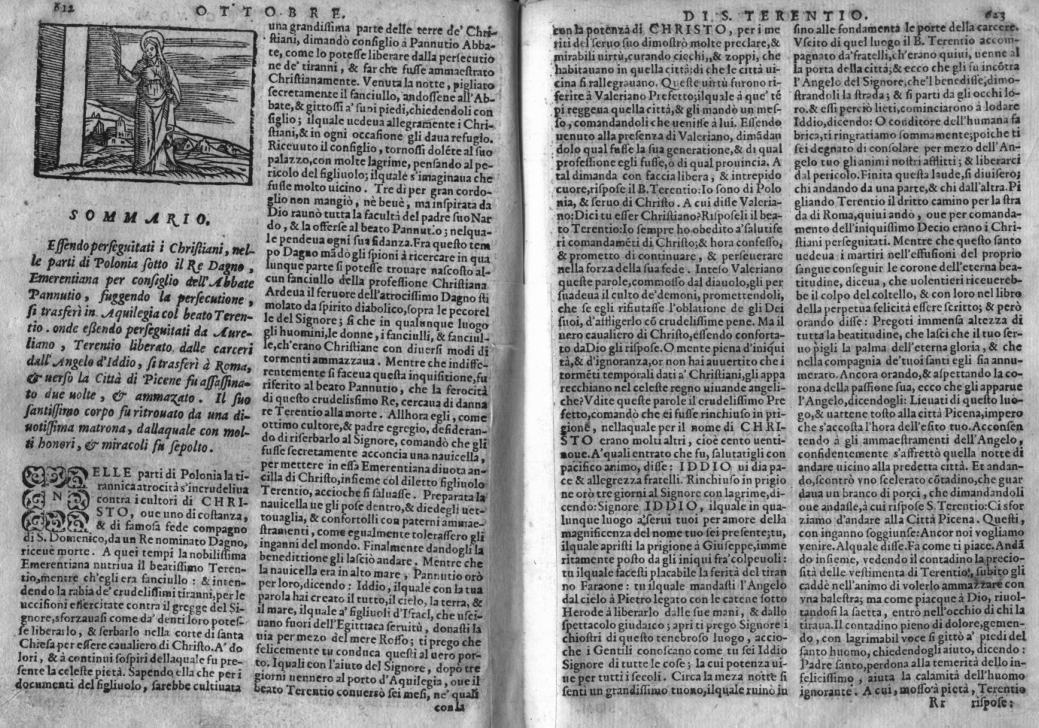 822
OTTOBRE.
SOMMARIO.
Essendo perseguitati i Christiani, nel-
le parti di Polonia sotto il Re Dagno,
Emerentiana per consiglio dell'Abbate
Pannutio, fuggendo la persecutione,
si trasferì in Aquilegia col beato Teren-
tio. onde essendo perseguitati da Aure-
liano, Terentio liberato dalle carceri
dall'Angelo d'Iddio, si trasferì à Roma,
& uerso la Città di Picene fu assassina-
to due uolte, & ammazato. Il suo
santissimo corpo fu ritrouato da una di-
uotissima matrona, dallaquale con mol-
ti honori, & miracoli fu sepolto.
NELLE parti di Polonia la ti-
rannica atrocità s'incrudeliua
contra i cultori di CHRI-
STO, oue uno di costanza,
& di famosa fede compagno
di S. Domenico, da un Re nominato Dagno,
riceuè morte. A quei tempi la nobilissima
Emerentiana nutriua il beatissimo Teren-
tio, mentre ch'egli era fanciullo: & inten-
dendo la rabia de' crudelissimi tiranni, per le
uccisioni essercitate contra il gregge del Si-
gnore, sforzauasi come da' denti loro potes-
se liberarlo, & serbarlo nella corte di santa
Chiesa per essere caualiero di Christo. A' do
lori, & à continui sospiri dellaquale fu pre-
sente la celeste pietà. Sapendo ella che per i
documenti del figliuolo, sarebbe cultiuata
una grandissima parte delle terre de' Chri-
stiani, dimandò consiglio à Pannutio Abba-
te, come lo potesse liberare dalla persecutio
ne de' tiranni, & far che fusse ammaestrato
Christianamente. Venuta la notte, pigliato
secretamente il fanciullo, andossene all'Ab-
bate, & gittossi a' suoi piedi, chiedendoli con
siglio; ilquale uedeua allegramente i Chri-
stiani, & in ogni occasione gli daua refugio.
Riceuuto il consiglio, tornossi dolēte al suo
palazzo, con molte lagrime, pensando al pe-
ricolo del figliuolo; ilquale s'imaginaua che
fusse molto uicino. Tre dì per gran cordo-
glio non mangiò, nè beuè, ma inspirata da
Dio raunò tutta la facultà del padre suo Nar
do, & la offerse al beato Pannutio; nelqua-
le pendeua ogni sua fidanza. Fra questo tem
po Dagno mādò gli spioni à ricercare in qua
lunque parte si potesse trouare nascosto al-
cun fanciullo della professione Christiana
Ardeua il feruore dell'atrocissimo Dagno sti
molato da spirito diabolico, sopra le pecorel
le del Signore; si che in qualunque luogo
gli huomini, le donne, i fanciulli, & fanciul-
le, ch'erano Christiane con diuersi modi di
tormenti ammazzaua. Mentre che indiffe-
rentemente si faceua questa inquisitione, fu
riferito al beato Pannutio, che la ferocità
di questo crudelissimo Re, cercaua di danna
re Terentio alla morte. Allhora egli, come
ottimo cultore, & padre egregio, desideran-
do di riserbarlo al Signore, comandò che gli
fusse secretamente acconcia una nauicella,
per mettere in essa Emerentiana diuota an-
cilla di Christo, insieme col diletto figliuolo
Terentio, accioche si saluasse. Preparata la
nauicella ue gli pose dentro, & diedegli uet-
touaglia, & confortolli con paterni ammae-
stramenti, come egualmente tolerassero gli
inganni del mondo. Finalmente dandogli la
beneditione gli lasciò andare. Mentre che
la nauicella era in alto mare, Pannutio orò
per loro, dicendo: Iddio, ilquale con la tua
parola hai creato il tutto, il cielo, la terra, &
il mare, ilquale a' figliuoli d'Israel, che usci-
uano fuori dell'Egittiaca seruitù, donasti la
uia per mezo del mere Rosso; ti prego che
felicemente tu conduca questi al uero por-
to. Iquali con l'aiuto del Signore, dopò tre
giorni uennero al porto d'Aquilegia, oue il
beato Terentio conuersò sei mesi, ne' quali
con la
DI S. TERENTIO.
623
con la potenza di CHRISTO, per i me
riti del seruo suo dimostrò molte preclare, &
mirabili uirtù, curando ciechi, & zoppi, che
habitauano in quella città: di che le città ui-
cina si rallegrauano. Queste uirtù furono ri-
ferite à Valeriano Prefetto; ilquale à que' tē
pi reggeua quella città, & gli mandò un mes-
so, comandandoli che uenisse à lui. Essendo
uenuto alla presenza di Valeriano, dimādan
dolo qual fusse la sua generatione, & di qual
professione egli fusse, ò di qual prouincia. A
tal dimanda con faccia libera, & intrepido
cuore, rispose il B. Terentio: Io sono di Polo
nia, & seruo di Christo. A cui disse Valeria-
no: Dici tu esser Christiano? Risposeli il bea-
to Terentio: Io sempre ho obedito a' salutife
ri comandamēti di Christo; & hora confesso,
& prometto di continuare, & perseuerare
nella forza della sua fede. Inteso Valeriano
queste parole, commosso dal diauolo, gli per
suadeua il culto de' demoni, promettendoli,
che se egli rifiutasse l'oblatione de gli Dei
suoi, d'affligerlo cō crudelissime pene. Ma il
nero caualiero di Christo, essendo conforta-
to da Dio gli rispose. O mente piena d'iniqui
tà, & d'ignoranza, or non hai auuertito che i
tormēti temporali dati a' Christiani, gli appa
recchiano nel celeste regno uiuande angeli-
che? Vdite queste parole il crudelissimo Pre
fetto, comandò che ei fusse rinchiuso in pri-
gione, nellaquale per il nome di CHRI-
STO erano molti altri, cioè cento uenti-
noue. A' quali entrato che fu, salutatigli con
pacifico animo, disse: IDDIO ui dia pa-
ce & allegrezza fratelli. Rinchiuso in prigio
ne orò tre giorni al Signore con lagrime, di-
cendo: Signore IDDIO, ilquale in qua-
lunque luogo a' serui tuoi per amore della
magnificenza del nome tuo sei presente; tu,
ilquale apristi la prigione à Giuseppe, imme
ritamente posto da gli iniqui fra' colpeuoli:
tu ilquale facesti placabile la ferità del tiran
no Faraone: tu ilquale mandasti l'Angelo
dal cielo à Pietro legato con le catene sotto
Herode à liberarlo dalle sue mani, & dallo
spettacolo giudaico; apri ti prego Signore i
chiostri di questo tenebroso luogo, accio-
che i Gentili conoscano come tu sei Iddio
Signore di tutte le cose; la cui potenza ui-
ue per tutti i secoli. Circa la meza notte si
sentì un grandissimo tuono, ilquale ruinò in
sino alle fondamenta le porte della carcere.
Vscito di quel luogo il B. Terentio accom-
pagnato da' fratelli, ch'erano quiui, uenne al
la porta della città; & ecco che gli fu incōtra
l'Angelo del Signore, che'l benedisse, dimo-
strandoli la strada; & si partì da gli occhi lo-
ro. & essi perciò lieti, cominciarono à lodare
Iddio, dicendo: O conditore dell'humana fa
brica, ti ringratiamo sommamente; poiche ti
sei degnato di consolare per mezo dell'An-
gelo tuo gli animi nostri afflitti; & liberarci
dal pericolo. Finita questa laude, si diuisero;
chi andando da una parte, & chi dall'altra. Pi
gliando Terentio il dritto camino per la stra
da di Roma, quiui andò, oue per comanda-
mento dell'iniquissimo Decio erano i Chri-
stiani perseguitati. Mentre che questo santo
uedeua i martiri nell'effusioni del proprio
sangue conseguir le corone dell'eterna bea-
titudine, diceua, che uolentieri riceuereb-
be il colpo del coltello, & con loro nel libro
della perpetua felicità essere scritto; & però
orando disse: Pregoti immensa altezza di
tutta la beatitudine, che lasci che il tuo ser-
uo pigli la palma dell'eterna gloria, & che
nella compagnia de' tuoi santi egli sia annu-
merato. Ancora orando, & aspettando la co-
rona della passione sua, ecco che gli apparue
l'Angelo, dicendogli: Lieuati di questo luo-
go, & uattene tosto alla città Picena, impero
che s'accosta l'hora dell'esito tuo. Acconsen
tendo à gli ammaestramenti dell'Angelo,
confidentemente s'affrettò quella notte di
andare uicino alla predetta città. Et andan-
do, scontrò vno scelerato cōtadino, che guar
daua un branco di porci, che dimandandoli
oue andasse, à cui rispose S. Terentio: Ci sfor
ziamo d'andare alla Città Picena. Questi,
con inganno soggiunse: Ancor noi vogliamo
venire. Alquale disse. Fa come ti piace. Andā
do insieme, vedendo il contadino la precio-
sità delle vestimenta di Terentio, subito gli
caddè nell'animo di volerlo ammazzare con
vna balestra; ma come piacque à Dio, riuol-
tandosi la saetta, entrò nell'occhio di chi la
tiraua. Il contadino pieno di dolore, gemen-
do, con lagrimabil voce si gittò a' piedi del
santo huomo, chiedendogli aiuto, dicendo:
Padre santo, perdona alla temerità dello in-
felicissimo, aiuta la calamità dell'huomo
ignorante. A cui, mosso à pietà, Terentio
Rr rispose: